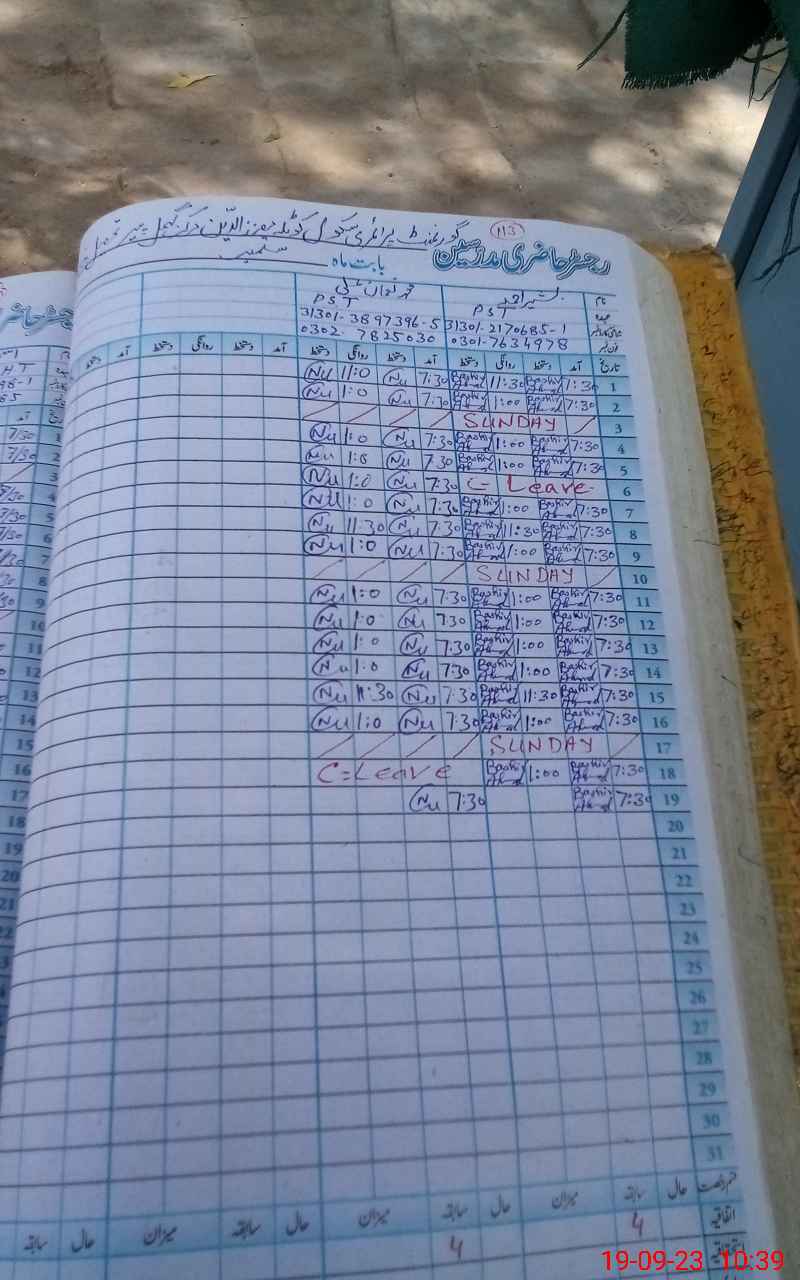 113
رجسٹر حاضری مدرسین
گورنمنٹ پرائمری سکول کوٹلہ
بابت ماہ ستمبر
نام بشیر احمد
عہدہ PST PST
31301-2170685-1 31301-3897396-5
0301-7634978 0302-7825030
تاریخ آمد دستخط روانگی دستخط آمد دستخط روانگی دستخط آمد دستخط روانگی دستخط آمد دستخط
1 7:30 Bashir Ahmad 11:30 Bashir Ahmad 7:30 Nu 11:0 Nu
2 7:30 Bashir Ahmad 1:00 Bashir Ahmad 7:30 Nu 1:0 Nu
3 SUNDAY
4 7:30 Bashir Ahmad 1:00 Bashir Ahmad 7:30 Nu 1:0 Nu
5 7:30 Bashir Ahmad 1:00 Bashir Ahmad 7:30 Nu 1:0 Nu
6 C- Leave 7:30 Nu 1:0 Nu
7 7:30 Bashir Ahmad 1:00 Bashir Ahmad 7:30 Nu 1:0 Nu
8 7:30 Bashir Ahmad 11:30 Bashir Ahmad 7:30 Nu 11:30 Nu
9 7:30 Bashir Ahmad 1:00 Bashir Ahmad 7:30 Nu 1:0 Nu
10 SUNDAY
11 7:30 Bashir Ahmad 1:00 Bashir Ahmad 7:30 Nu 1:0 Nu
12 7:30 Bashir Ahmad 1:00 Bashir Ahmad 7:30 Nu 1:0 Nu
13 7:30 Bashir Ahmad 1:00 Bashir Ahmad 7:30 Nu 1:0 Nu
14 7:30 Bashir Ahmad 1:00 Bashir Ahmad 7:30 Nu 1:0 Nu
15 7:30 Bashir Ahmad 11:30 Bashir Ahmad 7:30 Nu 11:30 Nu
16 7:30 Bashir Ahmad 1:00 Bashir Ahmad 7:30 Nu 1:0 Nu
17 SUNDAY
18 7:30 Bashir Ahmad 1:00 Bashir Ahmad C=Leave
19 7:30 Bashir Ahmad 7:30 Nu
20
21
22
23
24
25
26
27
28
29
30
31
قسم رخصت حال سابقہ میزان حال سابقہ میزان حال سابقہ میزان حال سابقہ
اتفاقیہ 4 4
استحقاقیہ
19-09-23 10:39